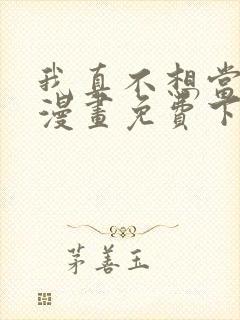 我真不想当
漫畫免費下
茅善玉